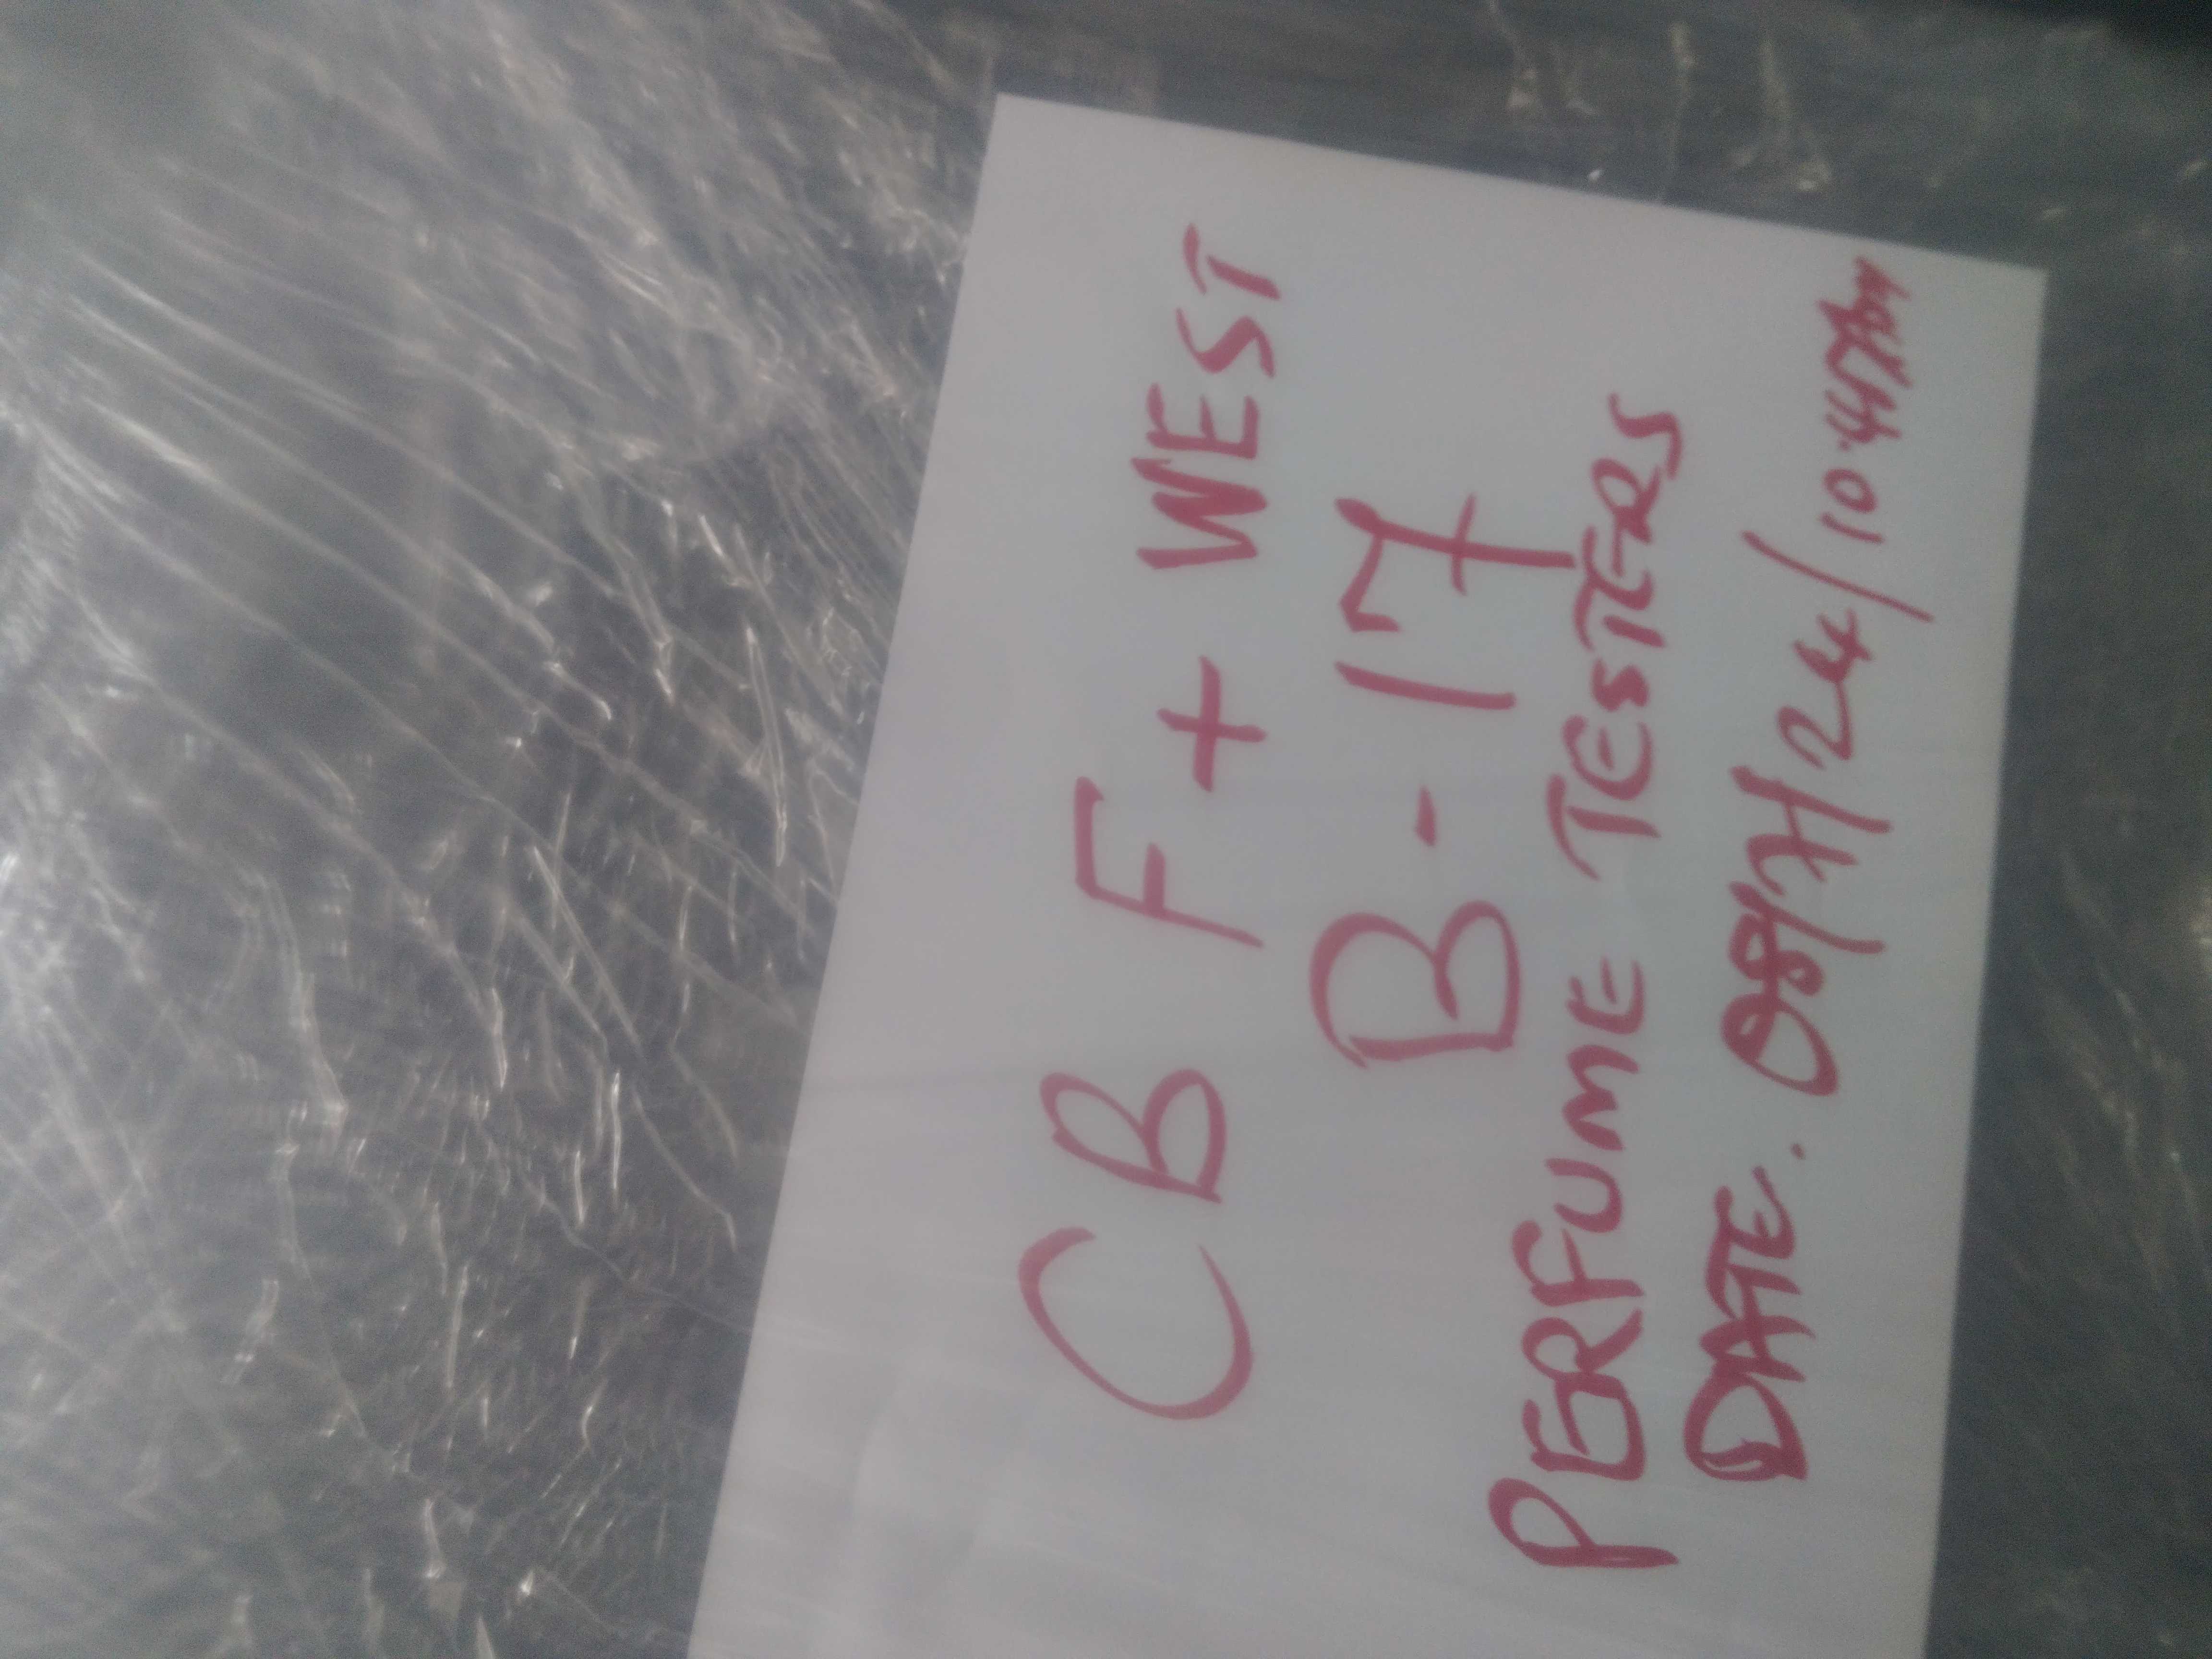 CB F + WEST
B - 17
PERFUME TESTERS
DATE. 08/11/24/